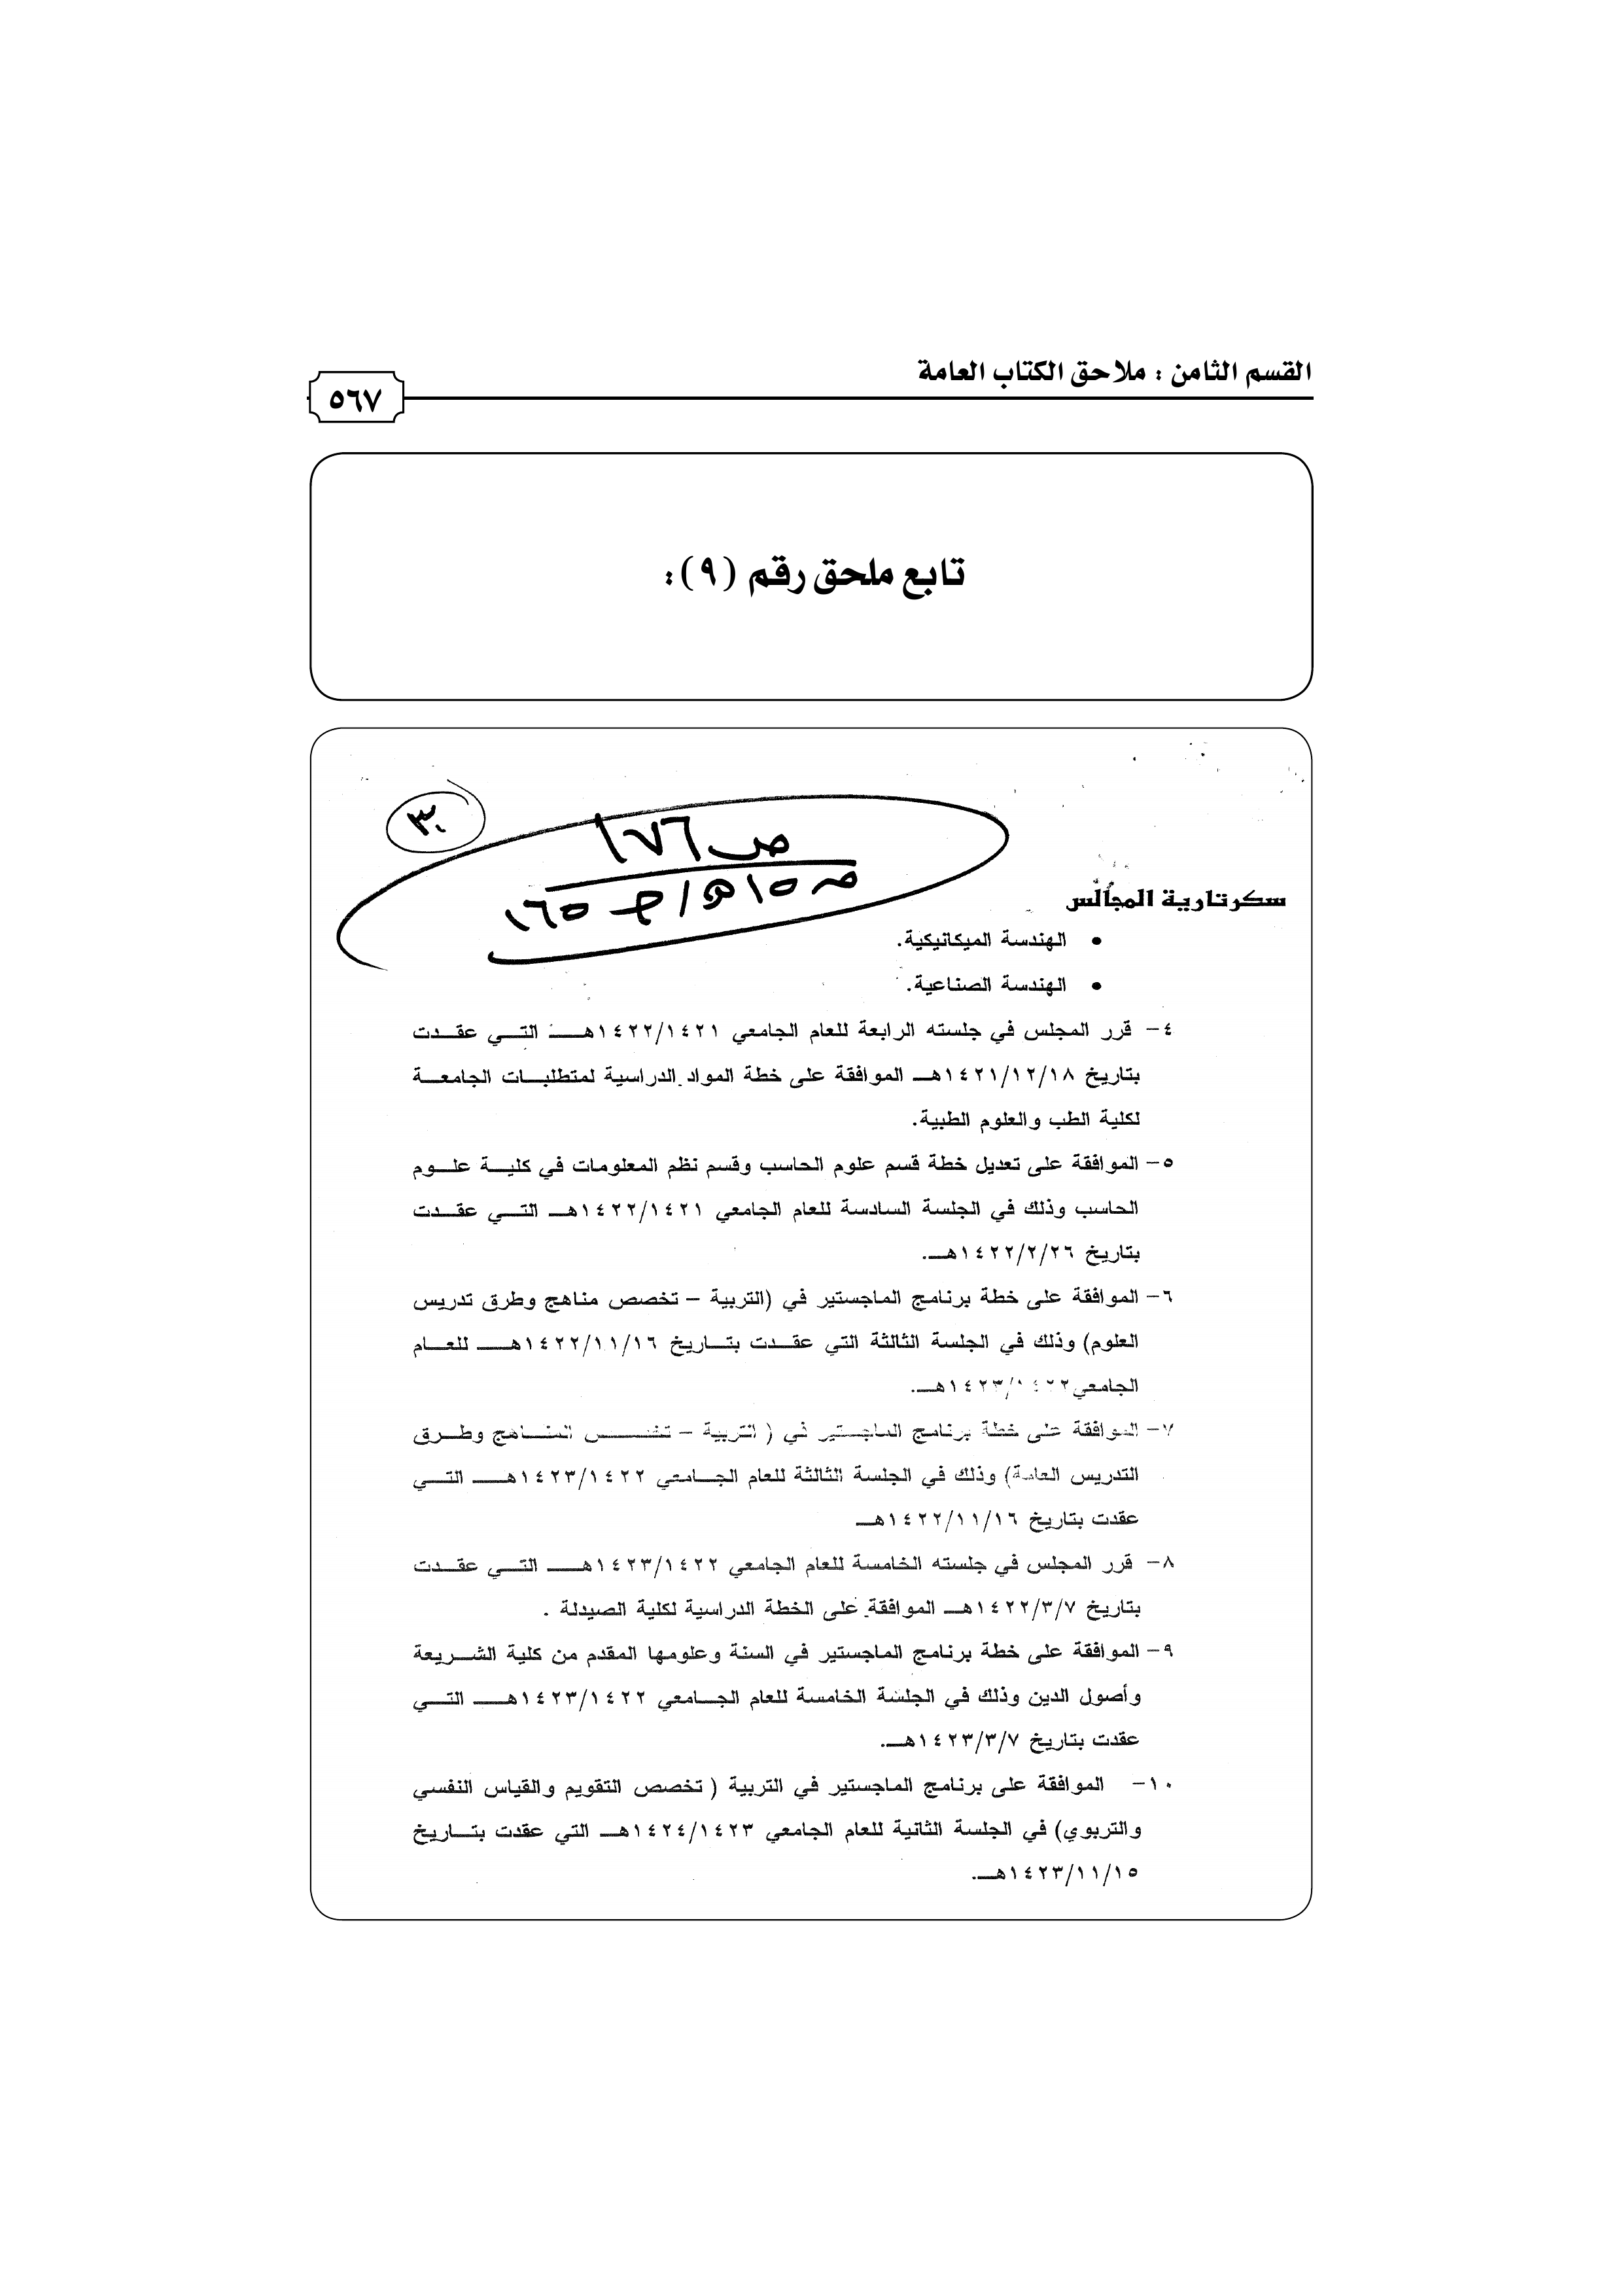 القسم الثامن : ملاحق الكتاب العامة
٥٦٧
تابع ملحق رقم (٩):
٣٠
ص ١٧٦
سكرتارية المجالس
• الهندسة الميكانيكية.
• الهندسة الصناعية.
٤- قرر المجلس في جلسته الرابعة للعام الجامعي ١٤٢٢/١٤٢١هـ التي عقدت
بتاريخ ١٤٢١/١٢/١٨هـ الموافقة على خطة المواد الدراسية لمتطلبات الجامعة
لكلية الطب والعلوم الطبية.
٥- الموافقة على تعديل خطة قسم علوم الحاسب وقسم نظم المعلومات في كلية علوم
الحاسب وذلك في الجلسة السادسة للعام الجامعي ١٤٢٢/١٤٢١هـ التي عقدت
بتاريخ ١٤٢٢/٢/٢٦هـ.
٦- الموافقة على خطة برنامج الماجستير في (التربية – تخصص مناهج وطرق تدريس
العلوم) وذلك في الجلسة الثالثة التي عقدت بتاريخ ١٤٢٢/١١/١٦هـ للعام
الجامعي ١٤٢٣/١٤٢٢هـ.
٧- الموافقة على خطة برنامج الماجستير في ( التربية – تخصص المناهج وطرق
التدريس العامة) وذلك في الجلسة الثالثة للعام الجامعي ١٤٢٣/١٤٢٢هـ التي
عقدت بتاريخ ١٤٢٢/١١/١٦هـ
٨- قرر المجلس في جلسته الخامسة للعام الجامعي ١٤٢٣/١٤٢٢هـ التي عقدت
بتاريخ ١٤٢٢/٣/٧هـ الموافقة على الخطة الدراسية لكلية الصيدلة .
٩- الموافقة على خطة برنامج الماجستير في السنة وعلومها المقدم من كلية الشريعة
وأصول الدين وذلك في الجلسة الخامسة للعام الجامعي ١٤٢٣/١٤٢٢هـ التي
عقدت بتاريخ ١٤٢٣/٣/٧هـ.
١٠- الموافقة على برنامج الماجستير في التربية ( تخصص التقويم والقياس النفسي
والتربوي) في الجلسة الثانية للعام الجامعي ١٤٢٤/١٤٢٣هـ التي عقدت بتاريخ
١٤٢٣/١١/١٥هـ.